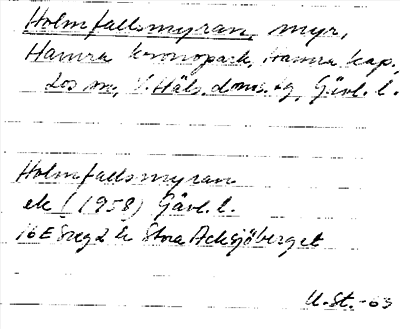 Holmfallsmyran, myr,
Hamra kronopark, Hamra kap.,
Los sn, V. Häls. doms.
Gävl. l.
Holmfallsmyran
ek (1958) Gävl. l.
16E Stora Acksjöberget
U. St. -63